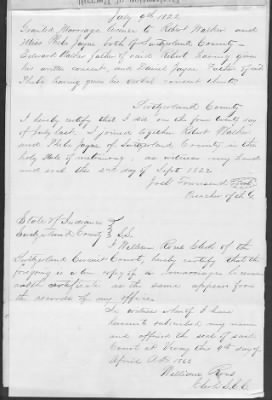 July 6th 1822
Granted Marriage license to Robert Walker and
Miss Phebe Jayne both of Switzerland County
Edward Walker father of said Robert having given
his written consent, and Daniel Jayne Father of said
Phebe having given his verbal consent thereto
Switzerland County
I hereby certify that I did on the day
of July last. I joined together Robert Walker
and Phebe Jayne of Switzerland County in the
holy State of matrimony. as witness my hand
and seal the 2nd day of Sept 1822
Joel Townsend
Preacher of the G
State of Indiana
Switzerland County } S.S.
I William Rous Clerk of the
Switzerland Circuit Court, hereby certify that the
forgoing is a true copy of a marriage license
and certificate as the same appears from
the records of my office.
In witness whereof I have
hereunto subscribed my name
and affixed the seal of said
Court at Vevay this 9th day of
April A.D. 1862
William Rous
Clerk S.C.C.